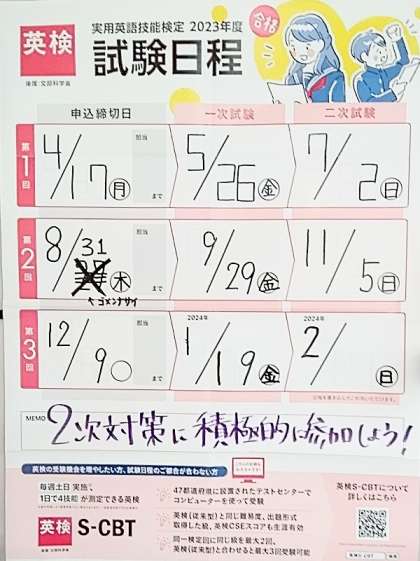 英検
後援：文部科学省
実用英語技能検定 2023年度
試験日程
合格
申込締切日
一次試験
二次試験
第1回
4/17 月
担当
まで
5/26 金
7/2 日
第2回
8/31 木
担当
まで
ゴメンナサイ
9/29 金
11/5 日
第3回
12/9
担当
まで
2024年
1/19 金
2024年
2/ 日
MEMO
2次対策に積極的に参加しよう!
英検の受験機会を増やしたい方、試験日程のご都合が合わない方
毎週土日実施、
1日で4技能が測定できる英検
英検 S-CBT
47都道府県に設置されたテストセンターで
コンピューターを使って受験
英検(従来型)と同じ難易度、出題形式
取得した級、英検CSEスコアも生涯有効
同一検定回に同じ級を最大2回、
英検(従来型)と合わせると最大3回受験可能
英検S-CBTについて
詳しくはこちら
英検S-CBT